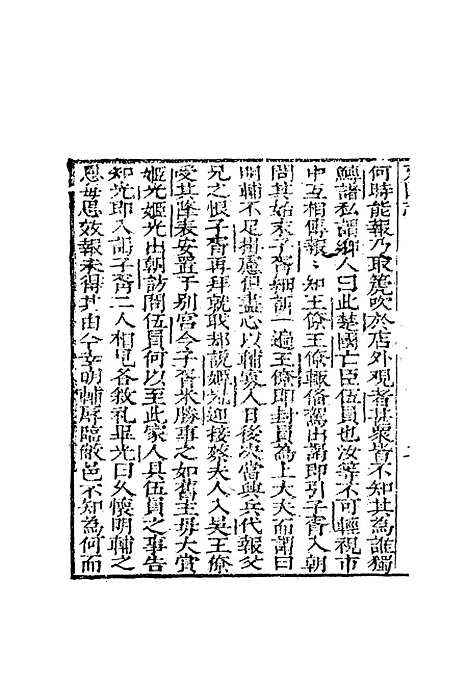 何時能報乃取篪吹於店外觀者甚衆皆不知其為誰獨
鱄諸私謂鄉人曰此楚國亡臣伍員也汝等不可輕視市
中互相傳報報知王僚王僚輙備駕出謁即引子胥入朝
問其始末子胥細訴一遍王僚即封員為上大夫而謂曰
明輔不足掛慮但盡心以輔寡人日後決當興兵代報父
兄之恨子胥再拜就職却說姬光迎接蔡夫人入吳王僚
受其降表安置于別宮令子胥米勝事之如舊主毋大賞
姬光姬光出朝訪問伍員何以至此家人具伍員之事告
知光即入謁子胥二人相見各敘礼畢光曰久懷明輔之
恩每思效報未得其由今幸明輔辱臨敝邑不知為何而